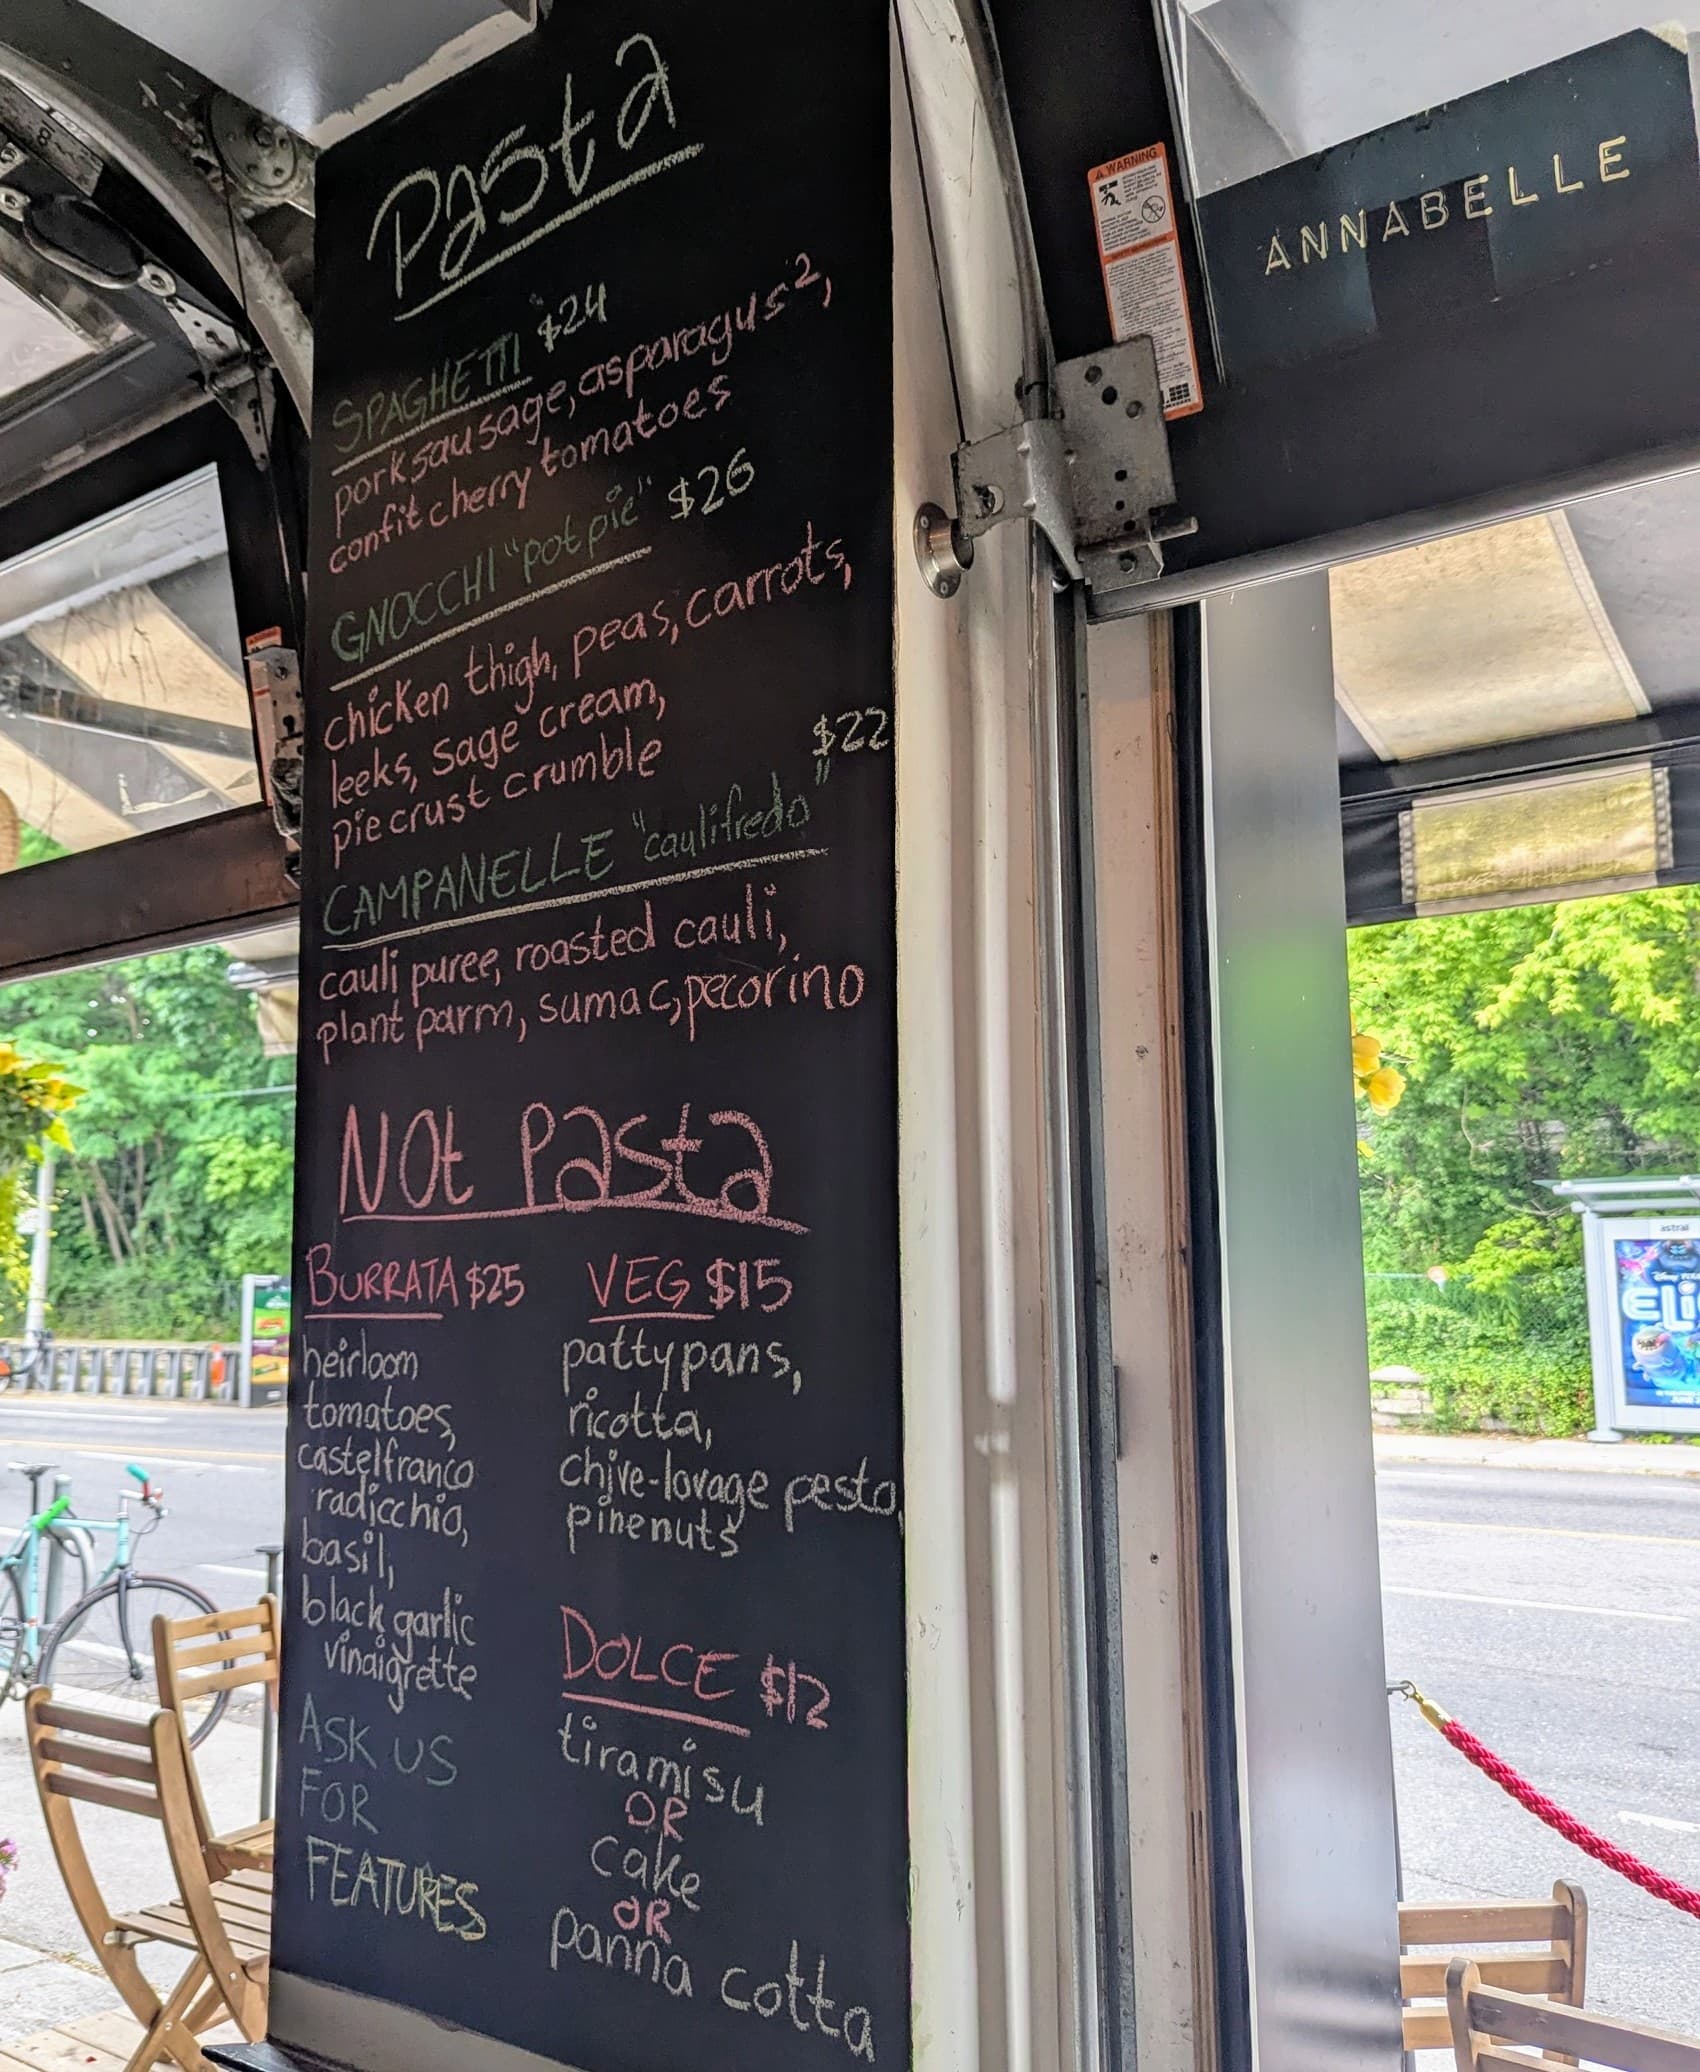 Pasta
SPAGHETTI $24
pork sausage, asparagus²,
confit cherry tomatoes
GNOCCHI "pot pie" $26
chicken thigh, peas, carrots,
leeks, sage cream,
pie crust crumble
$22
CAMPANELLE "caulifredo"
cauli puree, roasted cauli,
plant parm, sumac, pecorino
NOt Pasta
BURRATA $25
heirloom
tomatoes,
castelfranco
radicchio,
basil,
black garlic
vinaigrette
ASK US
FOR
FEATURES
VEG $15
pattypans,
ricotta,
chive-lovage pesto,
pinenuts
DOLCE $12
tiramisu
OR
cake
OR
panna cotta
WARNING
ANNABELLE
astral
Disney PIXAR
ELIO